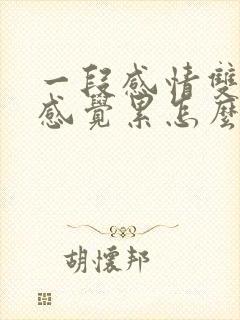 一段感情雙
感覺累怎麼
胡懷邦